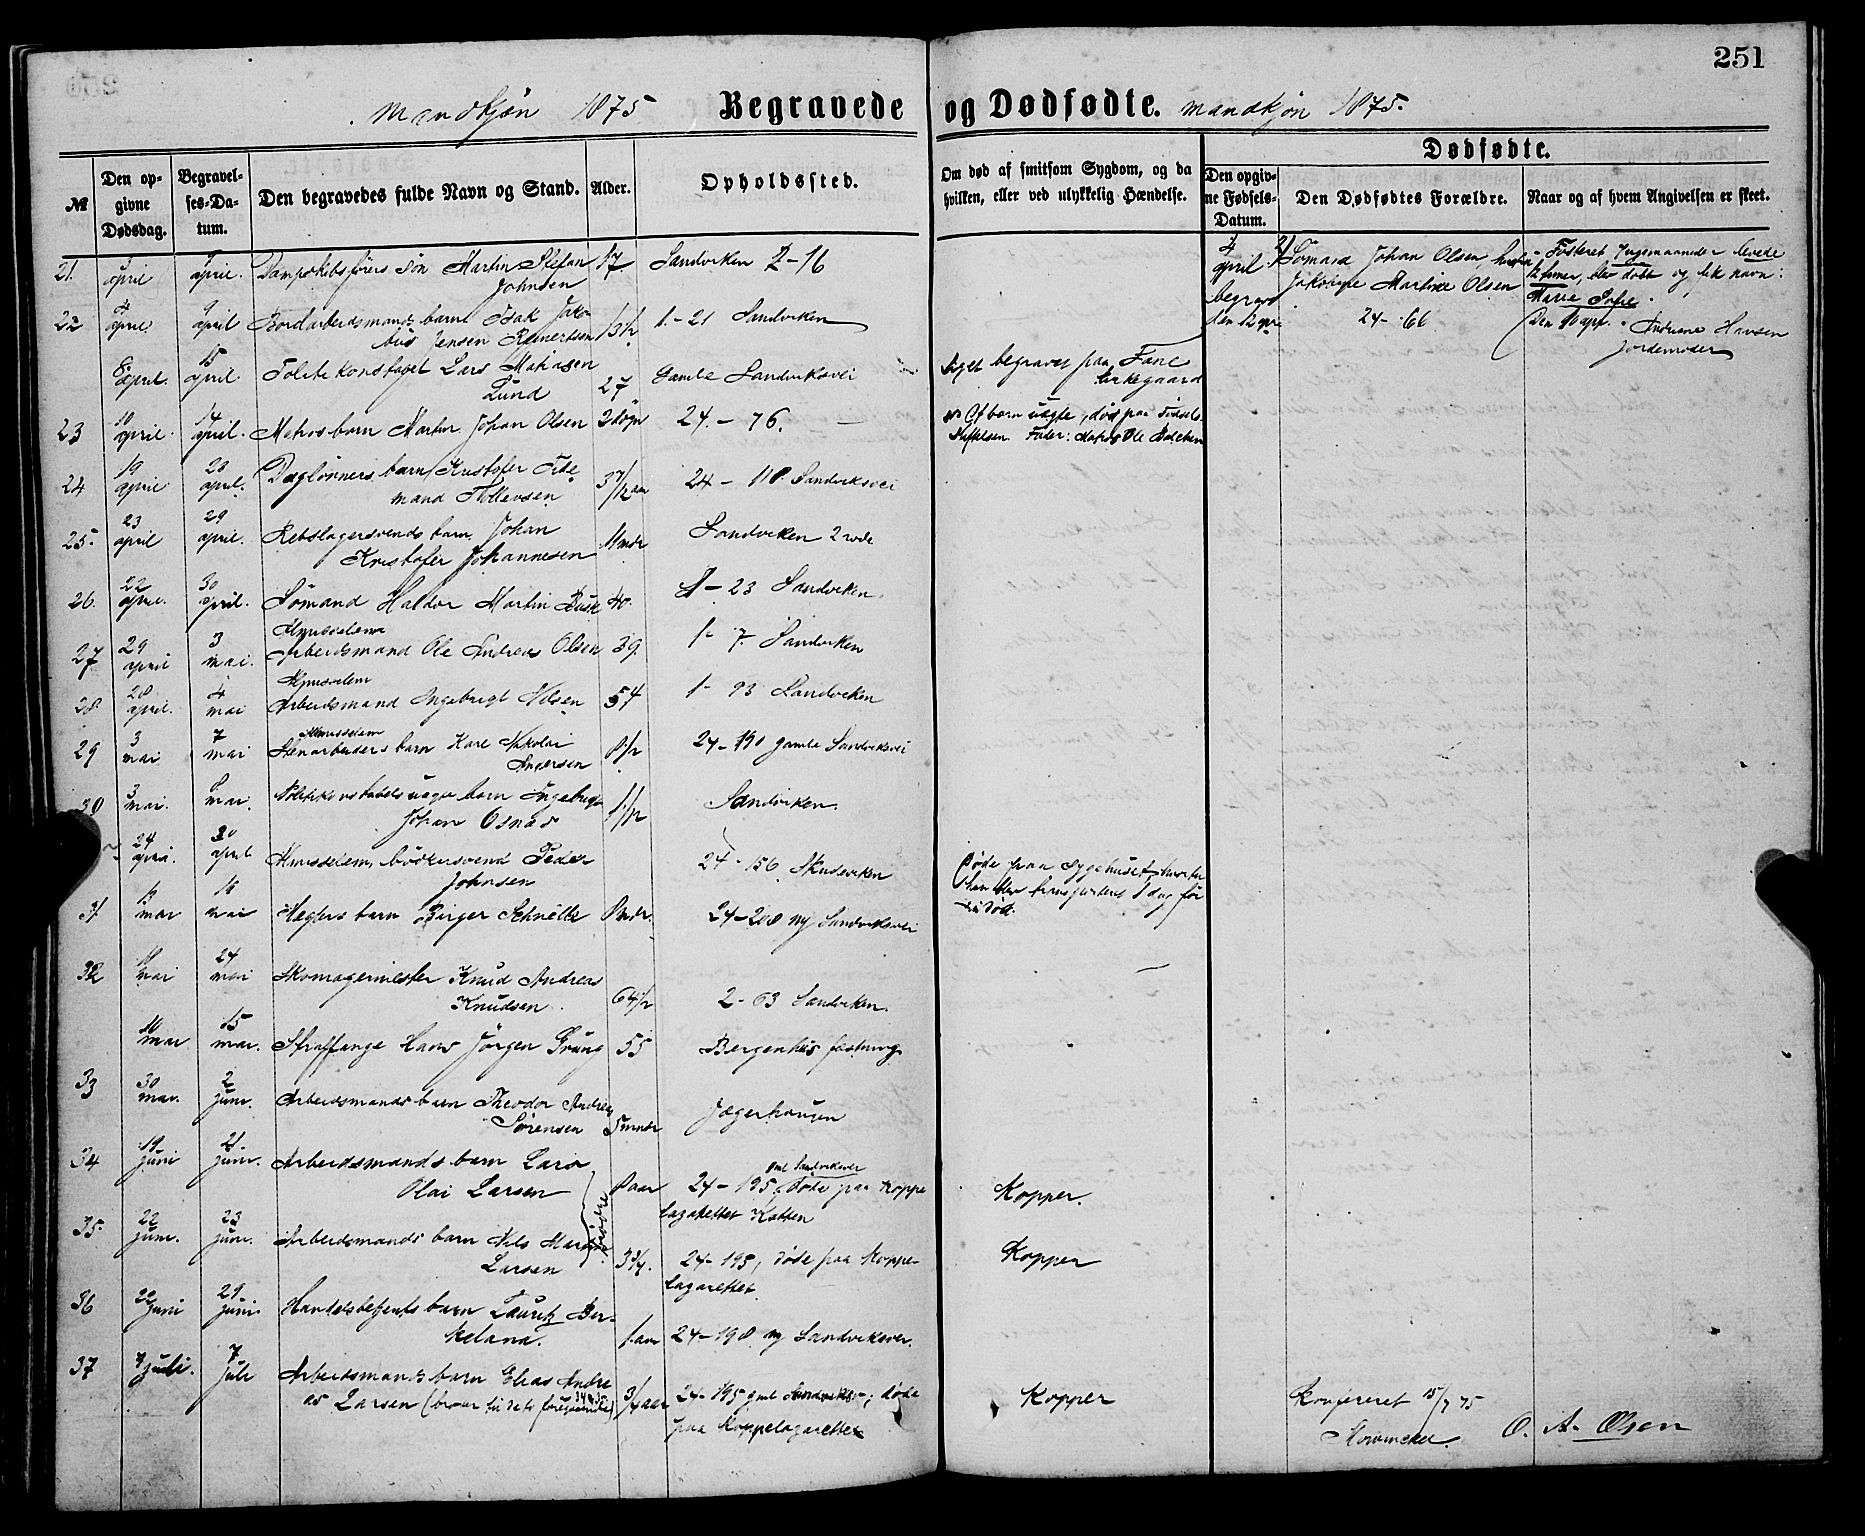 251
Mandkjøn 1875 Begravede og Dødfødte. Mandkjøn 1875.
Dødfødte.
№
Den opgivne Dødsdag.
Begravelses-Datum.
Den begravedes fulde Navn og Stand.
Alder.
Opholdssted.
Om død af smitsom Sygdom, og da
hvilken, eller ved ulykkelig Hændelse.
Den opgivne Fødsels-Datum.
Den Dødfødtes Forældre.
Naar og af hvem Angivelsen er skeet.
21. april april. Dampskibsførers Søn Martin Stefan 17 Sandviken 2-16
Johnsen
4 april 2) Sømand Johan Olsen, Fosteret 7 levede
Jakobine Martine Olsen 12 timer, blev døbt og fik navn:
begravet Marie Sofie.
den 12 apri 24-166 Den 10 apr. Andriane Hansen
Jordemoder
22 4 april 9 april Bordarbeidsmands barn Isak Jako-
bus Jensen Reinertsen 1.-21 Sandviken
8 april. 15 april Politikonstabel Lars Matiasen
Lund 27 Gamle Sandviksvei Liget begravet paa Fane
kirkegaard
23 10 april. 14 april. Matros barn Martin Johan Olsen 24.-76. barn uægte, død paa Fødsels-
Stiftelsen Fader: Matros Ole
24 19 april 23 april. Dagløners barn Kristofer Tide
mand Tollevsen 3 7/12 aar 24 - 118 Sandviksvei
25. 23 april 29 april. Rebslagersvends barn Johan
Kristofer Johannesen 11 mdr Sandviken 2 rode
26. 22 april. 30 april. Sømand Haldor Martin Busk 40. 1-23 Sandviken.
Almisselem
27 29 april 3 mai. Arbeidsmand Ole Andreas Olsen 39. 1-7 Sandviken
Almisselem
28 28 april. 4 mai Arbeidsmand Ingebrigt Nilsen 54 1-93 Sandviken
Almisselem
29 3 mai 7 mai Stenarbeiders barn Karl Nikolai
Andersen 24-190 gamle Sandviksvei
30 3 mai. 8 mai. Politikonstabels uægte barn Ingebrigt
Johan Osnæs 1 1/12 Sandviken.
24 april. 30 april Almisselem, bødkersvend Peder
Johnsen 24-156 Skudeviken Døde paa Sygehuset, hvorfra
han blev transporteret 1 dag før
sin død.
31 mai mai Hægters barn Birger Schnelle 8 mdr. 24-208 ny Sandviksvei
32 mai 24 mai Skomagermester Knud Andreas
Knudsen. 64 1/2 2-63 Sandviken.
10 mai 15 mai. Straffange Hans Jørgen Grung 55 Bergenhus fæstning
33 30 mai. 2 juni. Arbeidsmands barn Theodor Andreas
Sørensen 5 mndr Jægerhougen
34 19 juni 21 juni. Arbeidsmands barn Lars
Olai Larsen 8 aar 24-195, gml Sandviksvei døde paa Koppe
lazarettet Katten Kopper.
brødre
35. 22 juni. 23 juni. Arbeidsmands barn Nils Martin
Larsen 3 3/4. 24-195, døde paa Koppe-
lazarettet. Kopper
36 22 juni 29 juni. Handelsbetjents barn Lauritz Ber-
keland. 1 aar 24-198 ny Sandviksvei.
37 4 juli. 7 juli Arbeidsmands barn Elias Andre
as Larsen (broer til de to foregaaende 34 & 35) 3/4 aar 24-195 gml Sandviksv-; døde
paa Koppelazarettet Kopper
Konfereret 15/7 75
Mowinckel.
O. A. Olsen